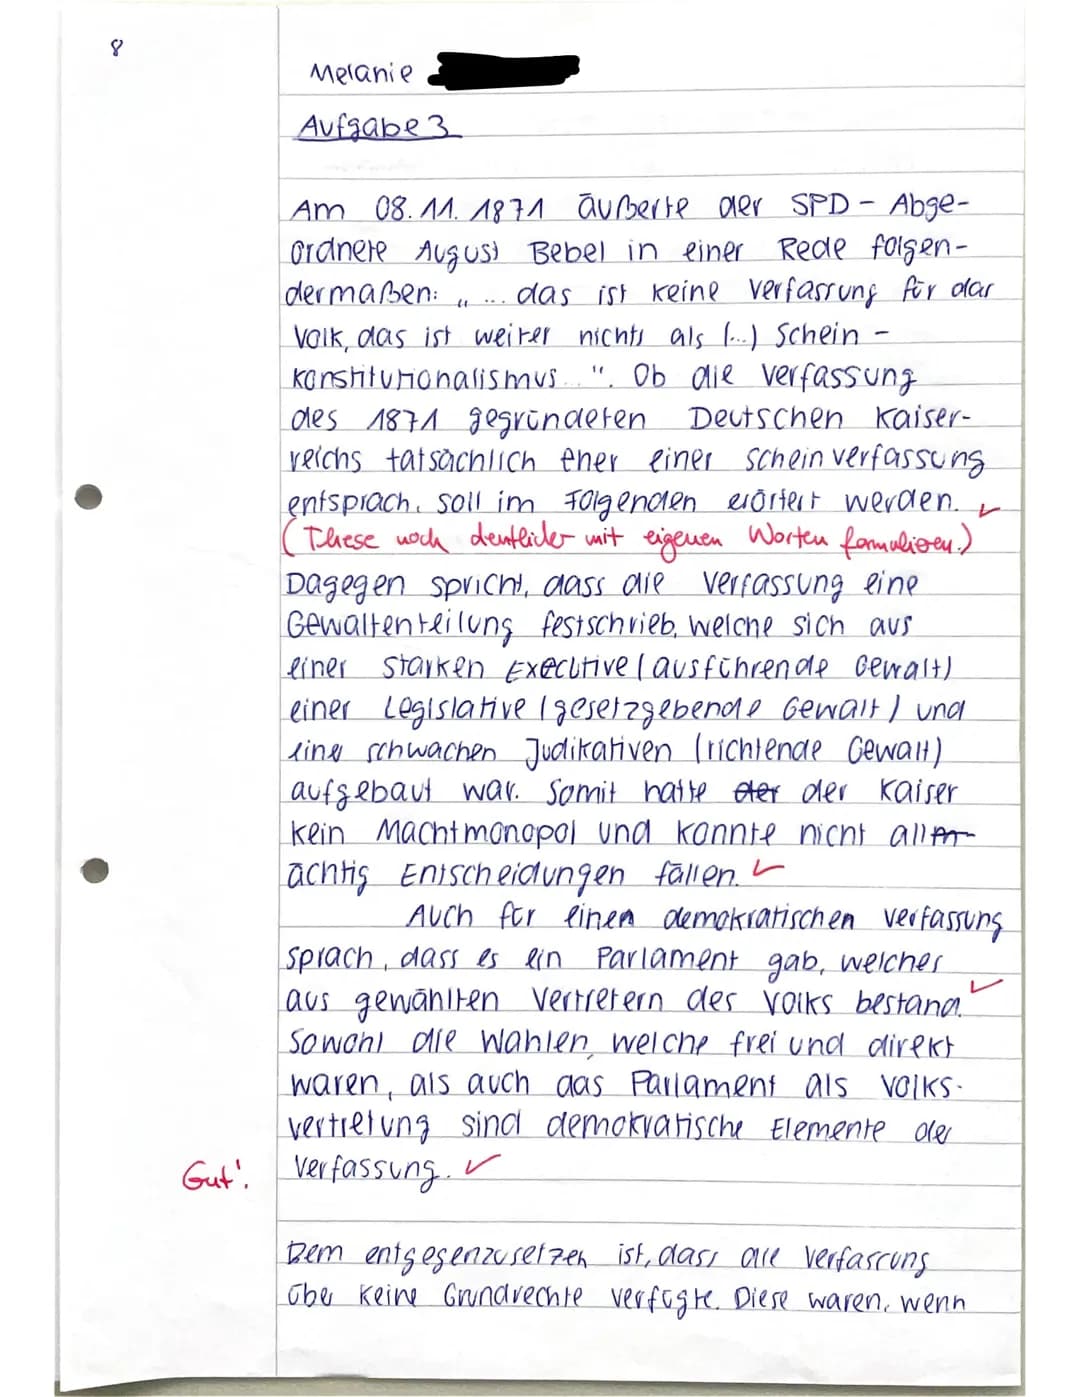 8
Melanie
Aufgabe 3
Am 08.11.1871 äußerte der SPD - Abge-
ordnete August Bebel in einer Rede folgen-
dermaßen: „ ... das ist keine Verfassung für das
Volk, das ist weiter nichts als (...) Schein -
konstitutionalismus...". Ob die Verfassung
des 1871 gegründeten Deutschen Kaiser-
reichs tatsächlich eher einer Scheinverfassung
entsprach, soll im Folgenden erörtert werden. ✓
(These noch deutlicher mit eigenen Worten formulieren.)
Dagegen spricht, dass die Verfassung eine
Gewaltenteilung festschrieb, welche sich aus
einer starken Executive (ausführende Gewalt)
einer Legislative (gesetzgebende Gewalt) und
eine schwachen Judikativen (richtende Gewalt)
aufgebaut war. Somit hatte der Kaiser
kein Machtmonopol und konnte nicht all
ächtig Entscheidungen fällen. ✓
Auch für einen demokratischen Verfassung
sprach, dass es ein Parlament gab, welches
aus gewählten Vertretern des Volks bestand. ✓
Sowohl die Wahlen, welche frei und direkt
waren, als auch das Parlament als Volks-
vertretung sind demokratische Elemente der
Gut! Verfassung. ✓
Dem entgegenzusetzen ist, dass die Verfassung
über keine Grundrechte verfügte. Diese waren, wenn